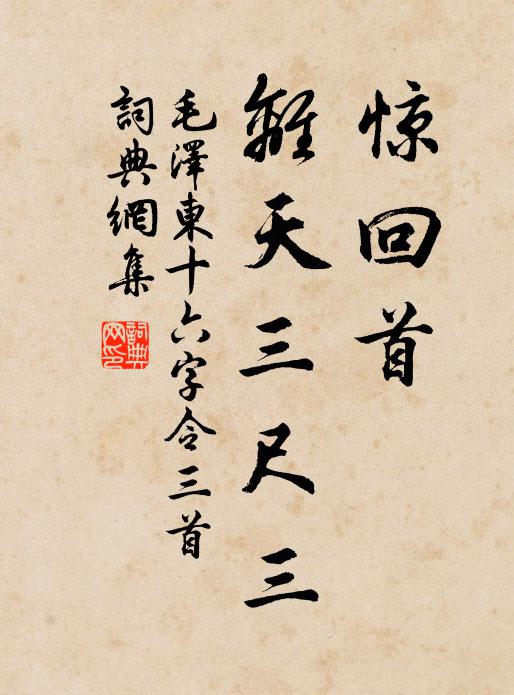 惊回首
離天三尺三
毛澤東十六字令三首
詞典網集
詞典
网印